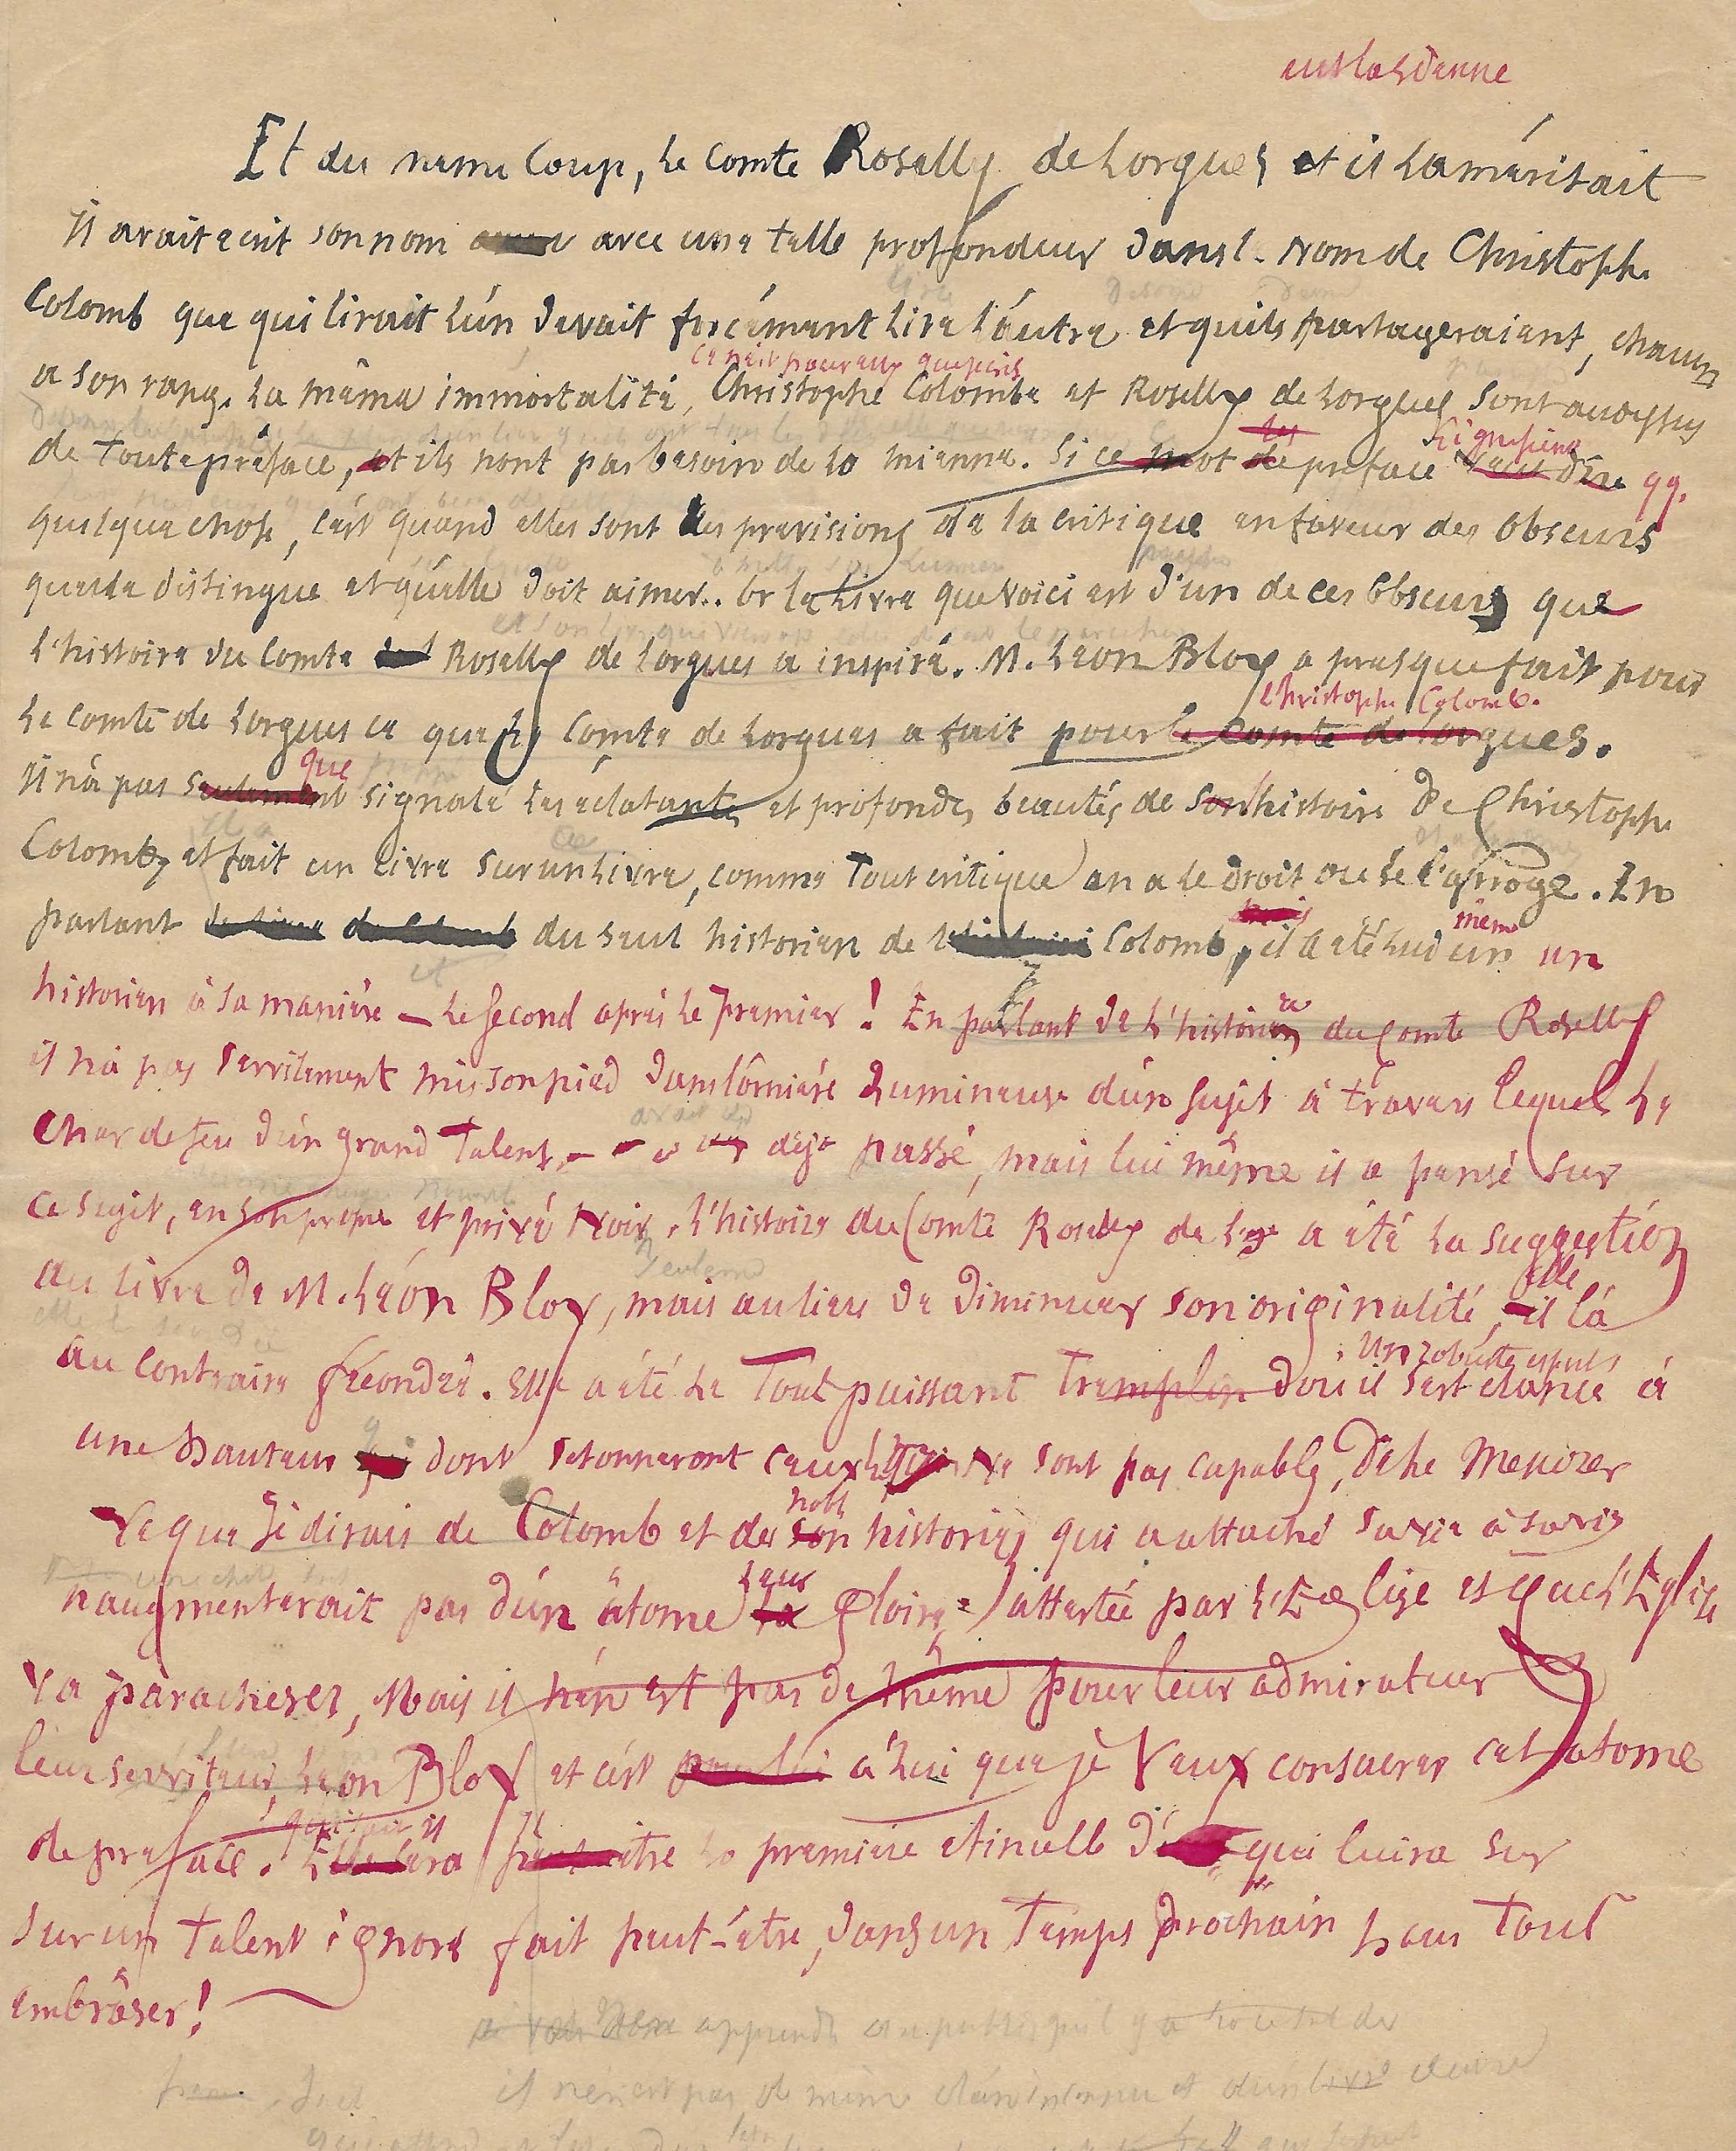 eut la sienne
Et du même coup, le comte Roselly de Lorgues et il la méritait
Il avait écrit son nom avec une telle profondeur dans l. nom de Christophe
Colomb que qui lirait l'un devait forcément lire l'autre et qu'ils partageraient, chacun
a son rang, la même immortalité, Christophe Colomb et Roselly de Lorgues sont au dessus
de toute préface, et ils n'ont pas besoin de la mienne. Si ce mot de les préface signifient veut dire qq.
quelque chose, c'est quand elles sont les prévisions de la critique en faveur des obscurs
qu'elle distingue et qu'elle doit aimer.. Or le Livre que voici est d'un de ces obscurs que
l'histoire du Comte Roselly de Lorgues a inspiré. M. Léon Bloy a presque fait pour
Christophe Colomb.
le comte de Lorgues ce que le Comte de Lorgues a fait pour le Comte de Lorgues.
que
Il n'a pas seulement signalé les éclatantes et profondes beautés de son histoire De Christophe
Colomb, et fait un livre sur un Livre, comme tout critique en a le droit ou se l'arroge. En
parlant du seul historien de Colomb, il a été lui même un un
historien à sa manière — le second après le premier ! En parlant de l'histoire du Comte Roselly
il n'a pas servilement mis son pied dans l'ornière lumineuse d'un sujet à travers lequel le
char de feu d'un grand Talent, déjà passé, mais lui même il a pensé sur
ce sujet, en son propre et privé Nom. L'histoire du Comte Roselly de Lgs a été la suggestion
au livre de M. Léon Bloy, mais au lieu de diminuer son originalité, elle il l'a
Un robuste esprit
au contraire fécondée. Elle a été le Tout puissant Tremplin d'où il s'est élancé à
une hauteur dont s'étonneront ceux qui ne sont pas capables de le Mesurer
noble
Ce que je dirais de Colomb et de son historien qui a attaché sa vie à sa vie
leur
n'augmenterait pas d'un atome la gloire attestée par l'Eglise et que l'Eglise
va parachever, Mais il n'en est pas de même pour leur admirateur
leur serviteur, Léon Bloy et c'est pour lui à lui que je Veux consacrer cet atome
de préface. Elle sera peut-être la première étincelle qui luira sur
sur un talent ignoré fait peut-être, dans un temps prochain pour Tout
embrâser !
apprendre au public qu'il y a
il n'en est pas de même d'un inconnu et d'un livre